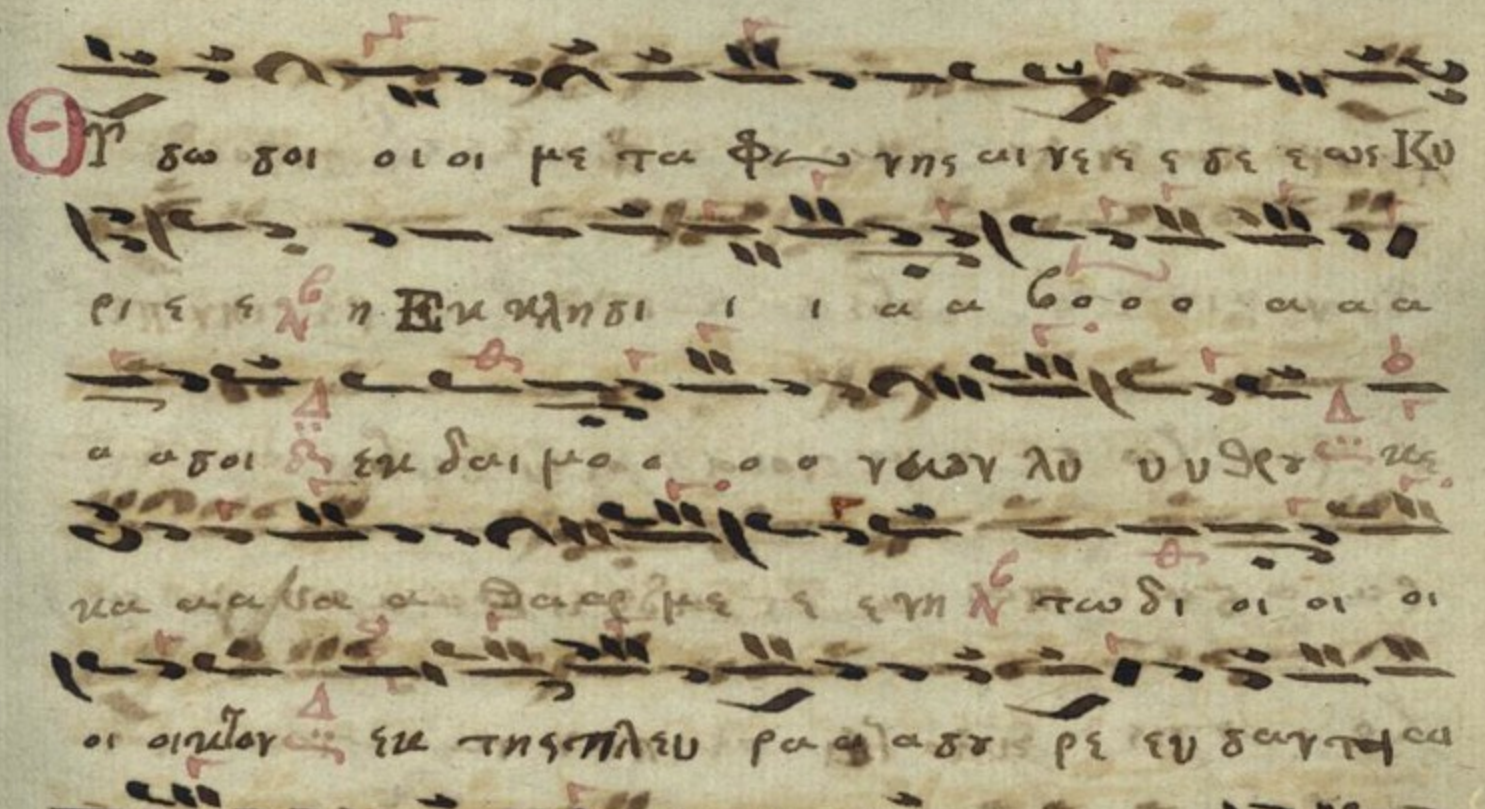 Θύσω σοι οι οι με τα φω νης αι νε ε ε σε ε ως Κυ
ρι ε ε η Εκ κλησι ι ι α α βο ο ο ο α α α
α α σοι εκ δαι μο ο ο ο νων λυ υ υ θρου κε
κα α α θα α θαρ με ε ε νη τω δι οι οι οι
οι οικτον εκ της πλευ ρα α α σου ρε ευ σαντι